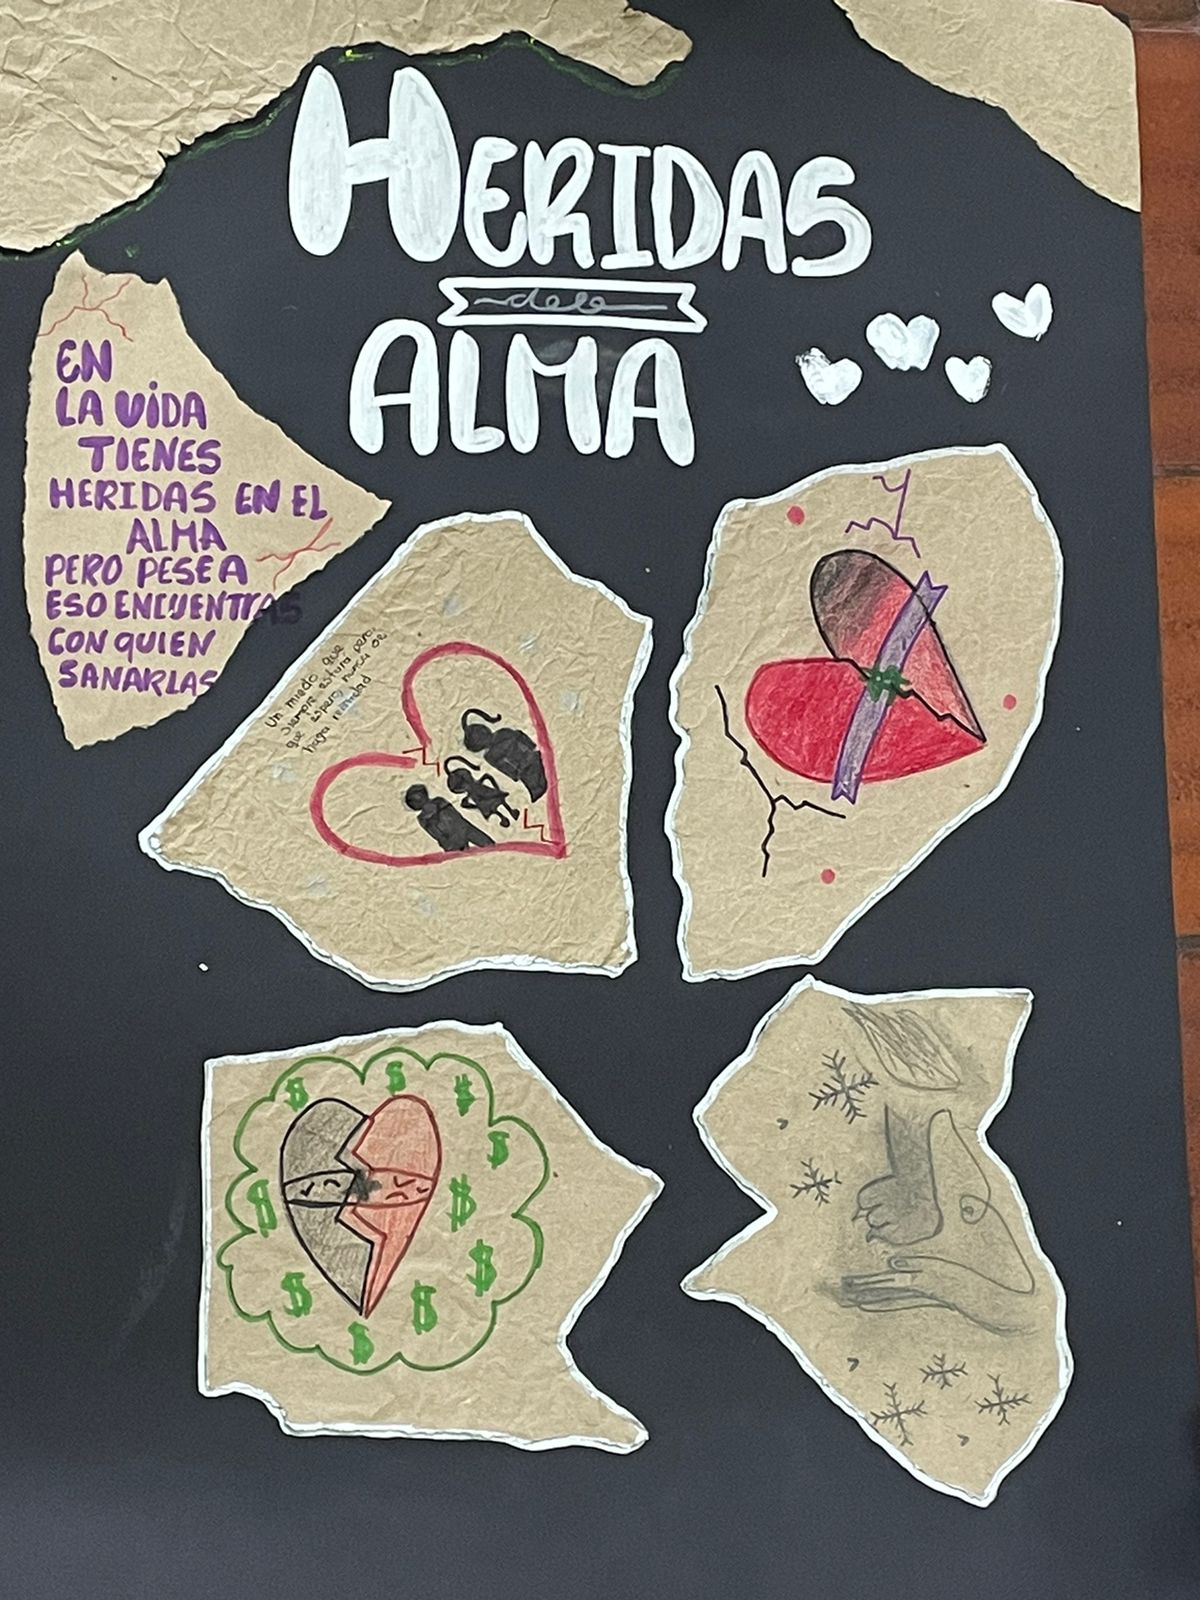 HERIDAS
de la
ALMA
EN
LA VIDA
TIENES
HERIDAS EN EL
ALMA
PERO PESE A
ESO ENCUENTRAS
CON QUIEN
SANARLAS
Un miedo que
siempre estura pero
que espero nunca se
haga realidad
$ $ $ $ $ $ $ $ $ $